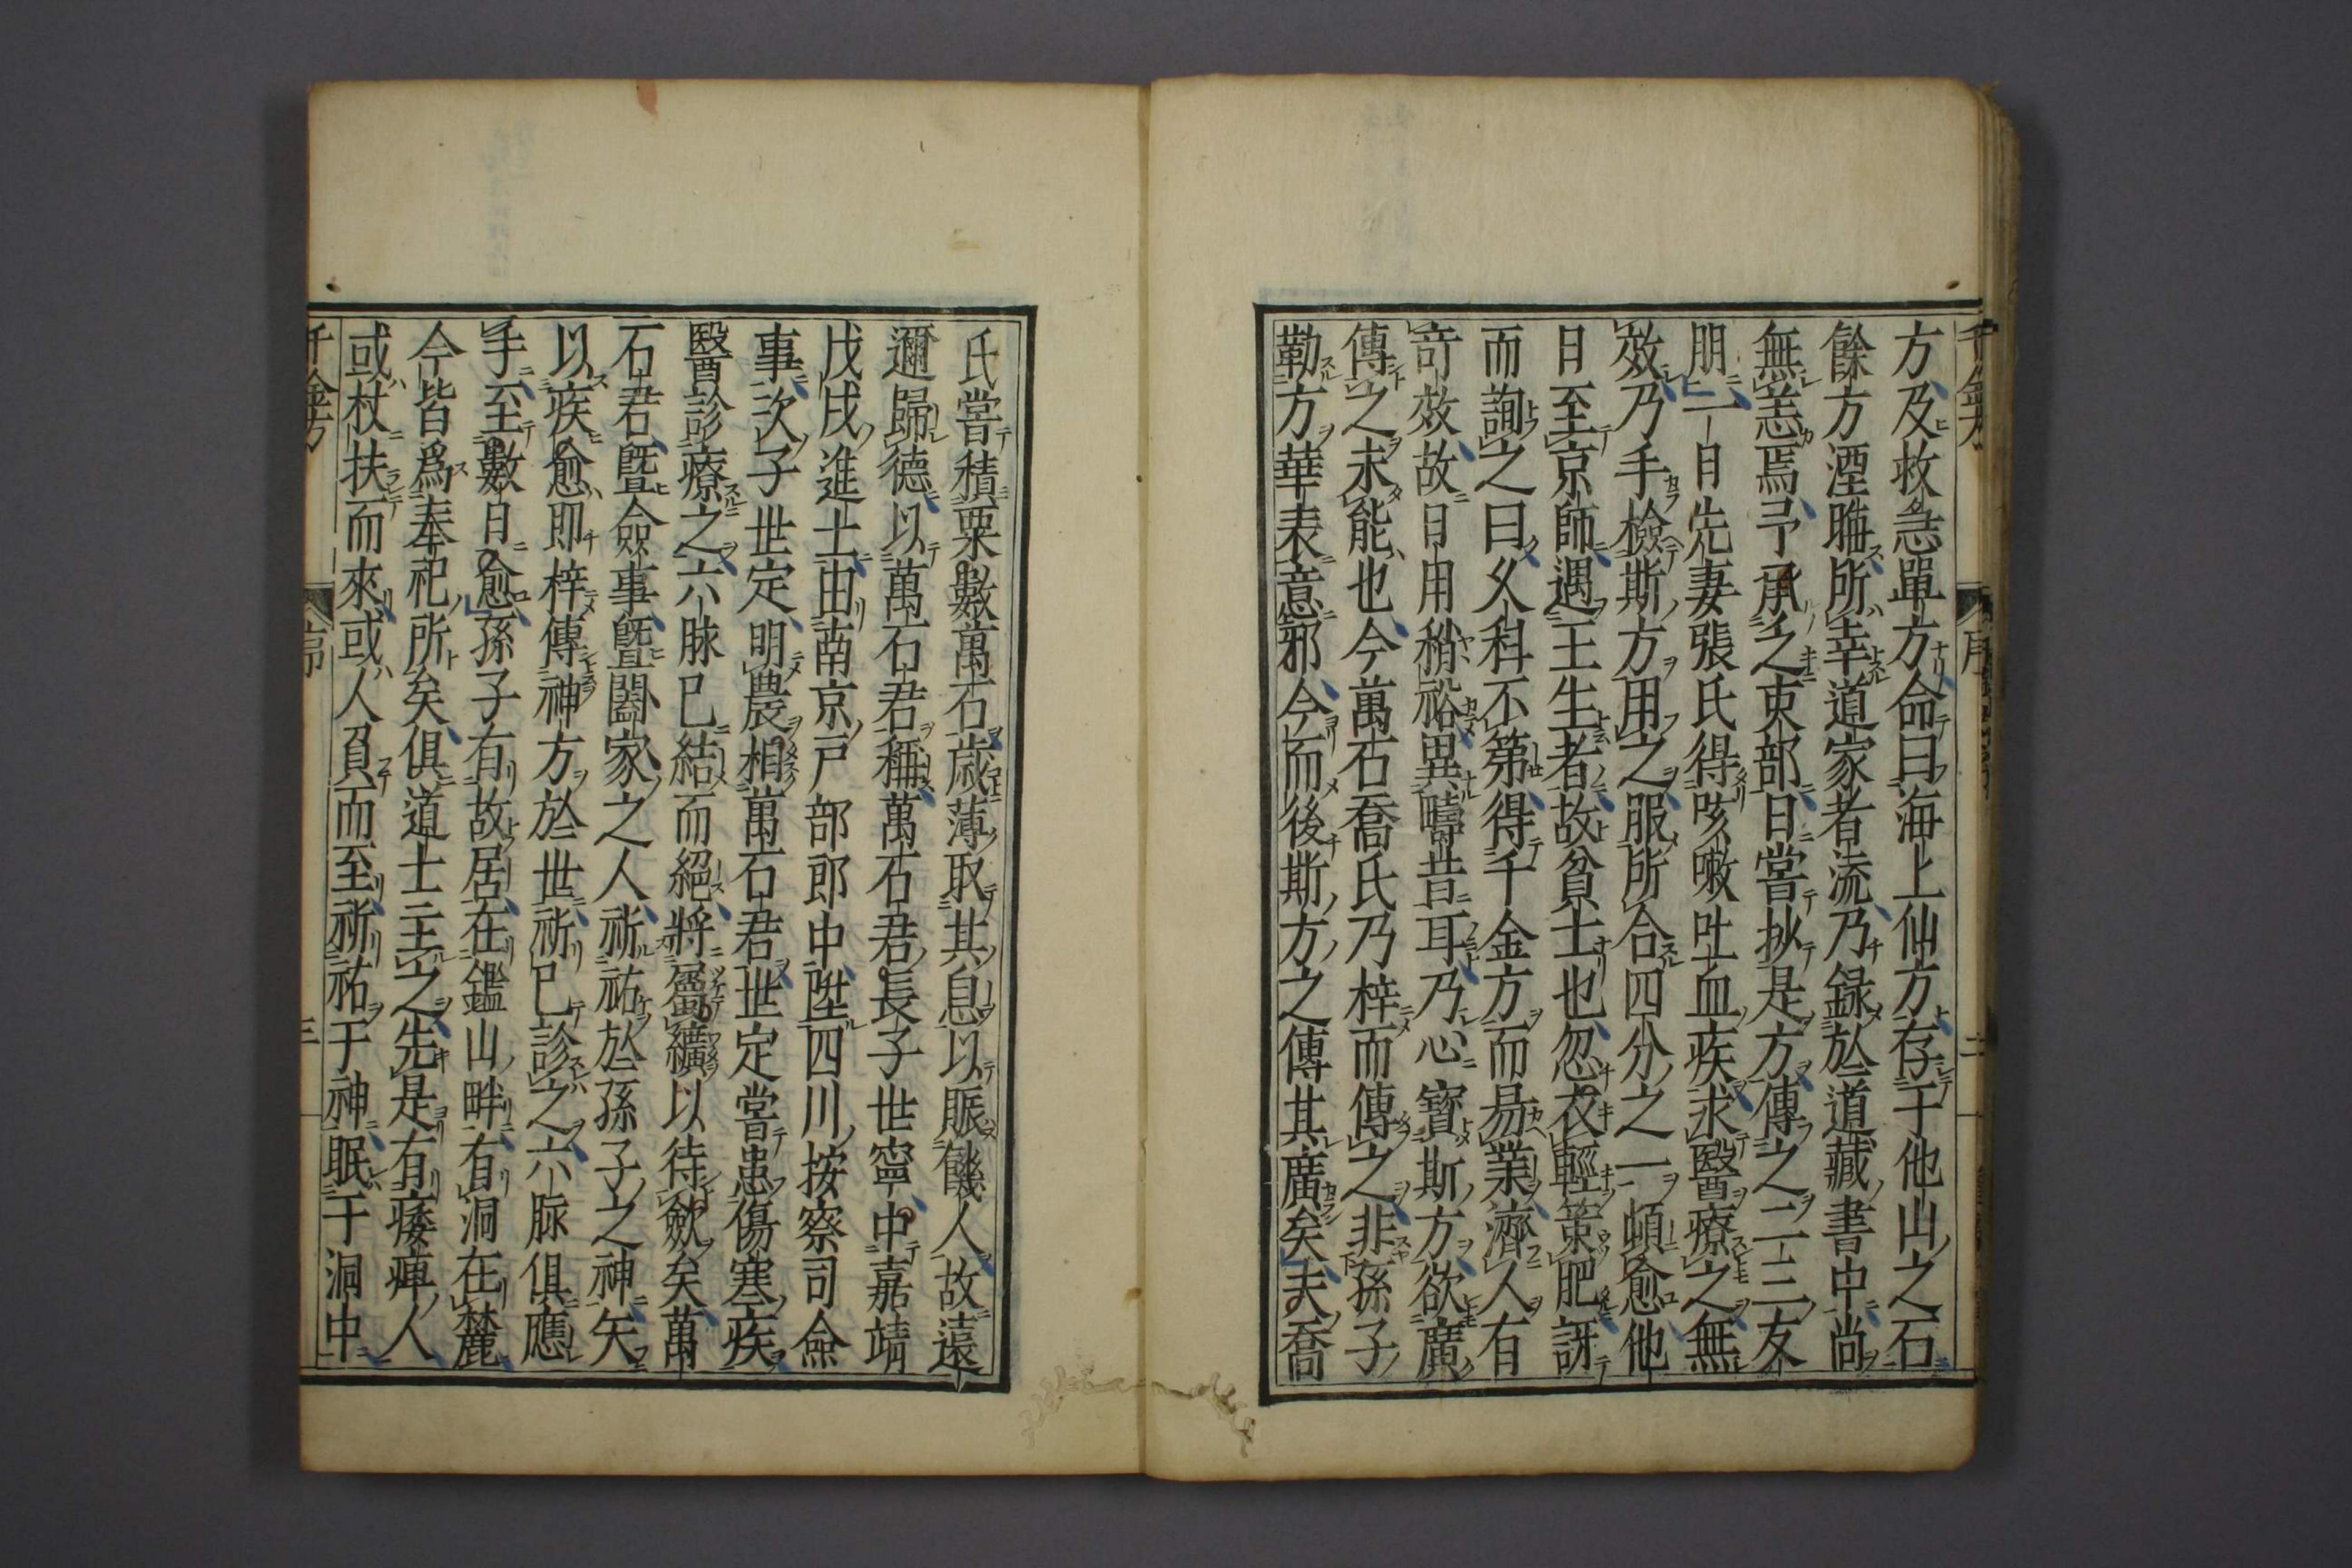 千金方
序
二
方及救急單方命曰海上仙方存于他山之石
餘方湮晦所幸道家者流乃錄於道藏書中尚
無恙焉予承乏吏部日嘗抄是方傳之二三友
朋一日先妻張氏得咳嗽吐血疾求醫療之無
效乃手檢斯方用之服所合四分之一頓愈他
日至京師遇王生者故貧士也忽衣輕策肥訝
而詢之曰乆科不第得千金方而易業濟人有
竒效故日用稍裕異疇昔耳乃心寶斯方欲廣
傳之未能也今萬石喬氏乃梓而傳之非孫子
勒方華表意邪今而後斯方之傳其廣矣夫喬
氏嘗積粟數萬石歲薄取其息以賑饑人故遠
邇歸德以萬石君稱萬石君長子世寧中嘉靖
戊戌進士由南京戸部郎中陞四川按察司僉
事次子世定明農相萬石君世定嘗患傷寒疾
醫診療之六脉已結而絕將屬纊以待斂矣萬
石君暨僉事暨闔家之人祈祐於孫子之神矢
以疾愈即梓傳神方於世祈已診之六脉俱應
手至數日愈孫子有故居在鑑山畔有洞在麓
今皆爲奉祀所矣俱道士主之先是有痿痺人
或杖扶而來或人負而至祈祐于神眠于洞中
千金方
序
三